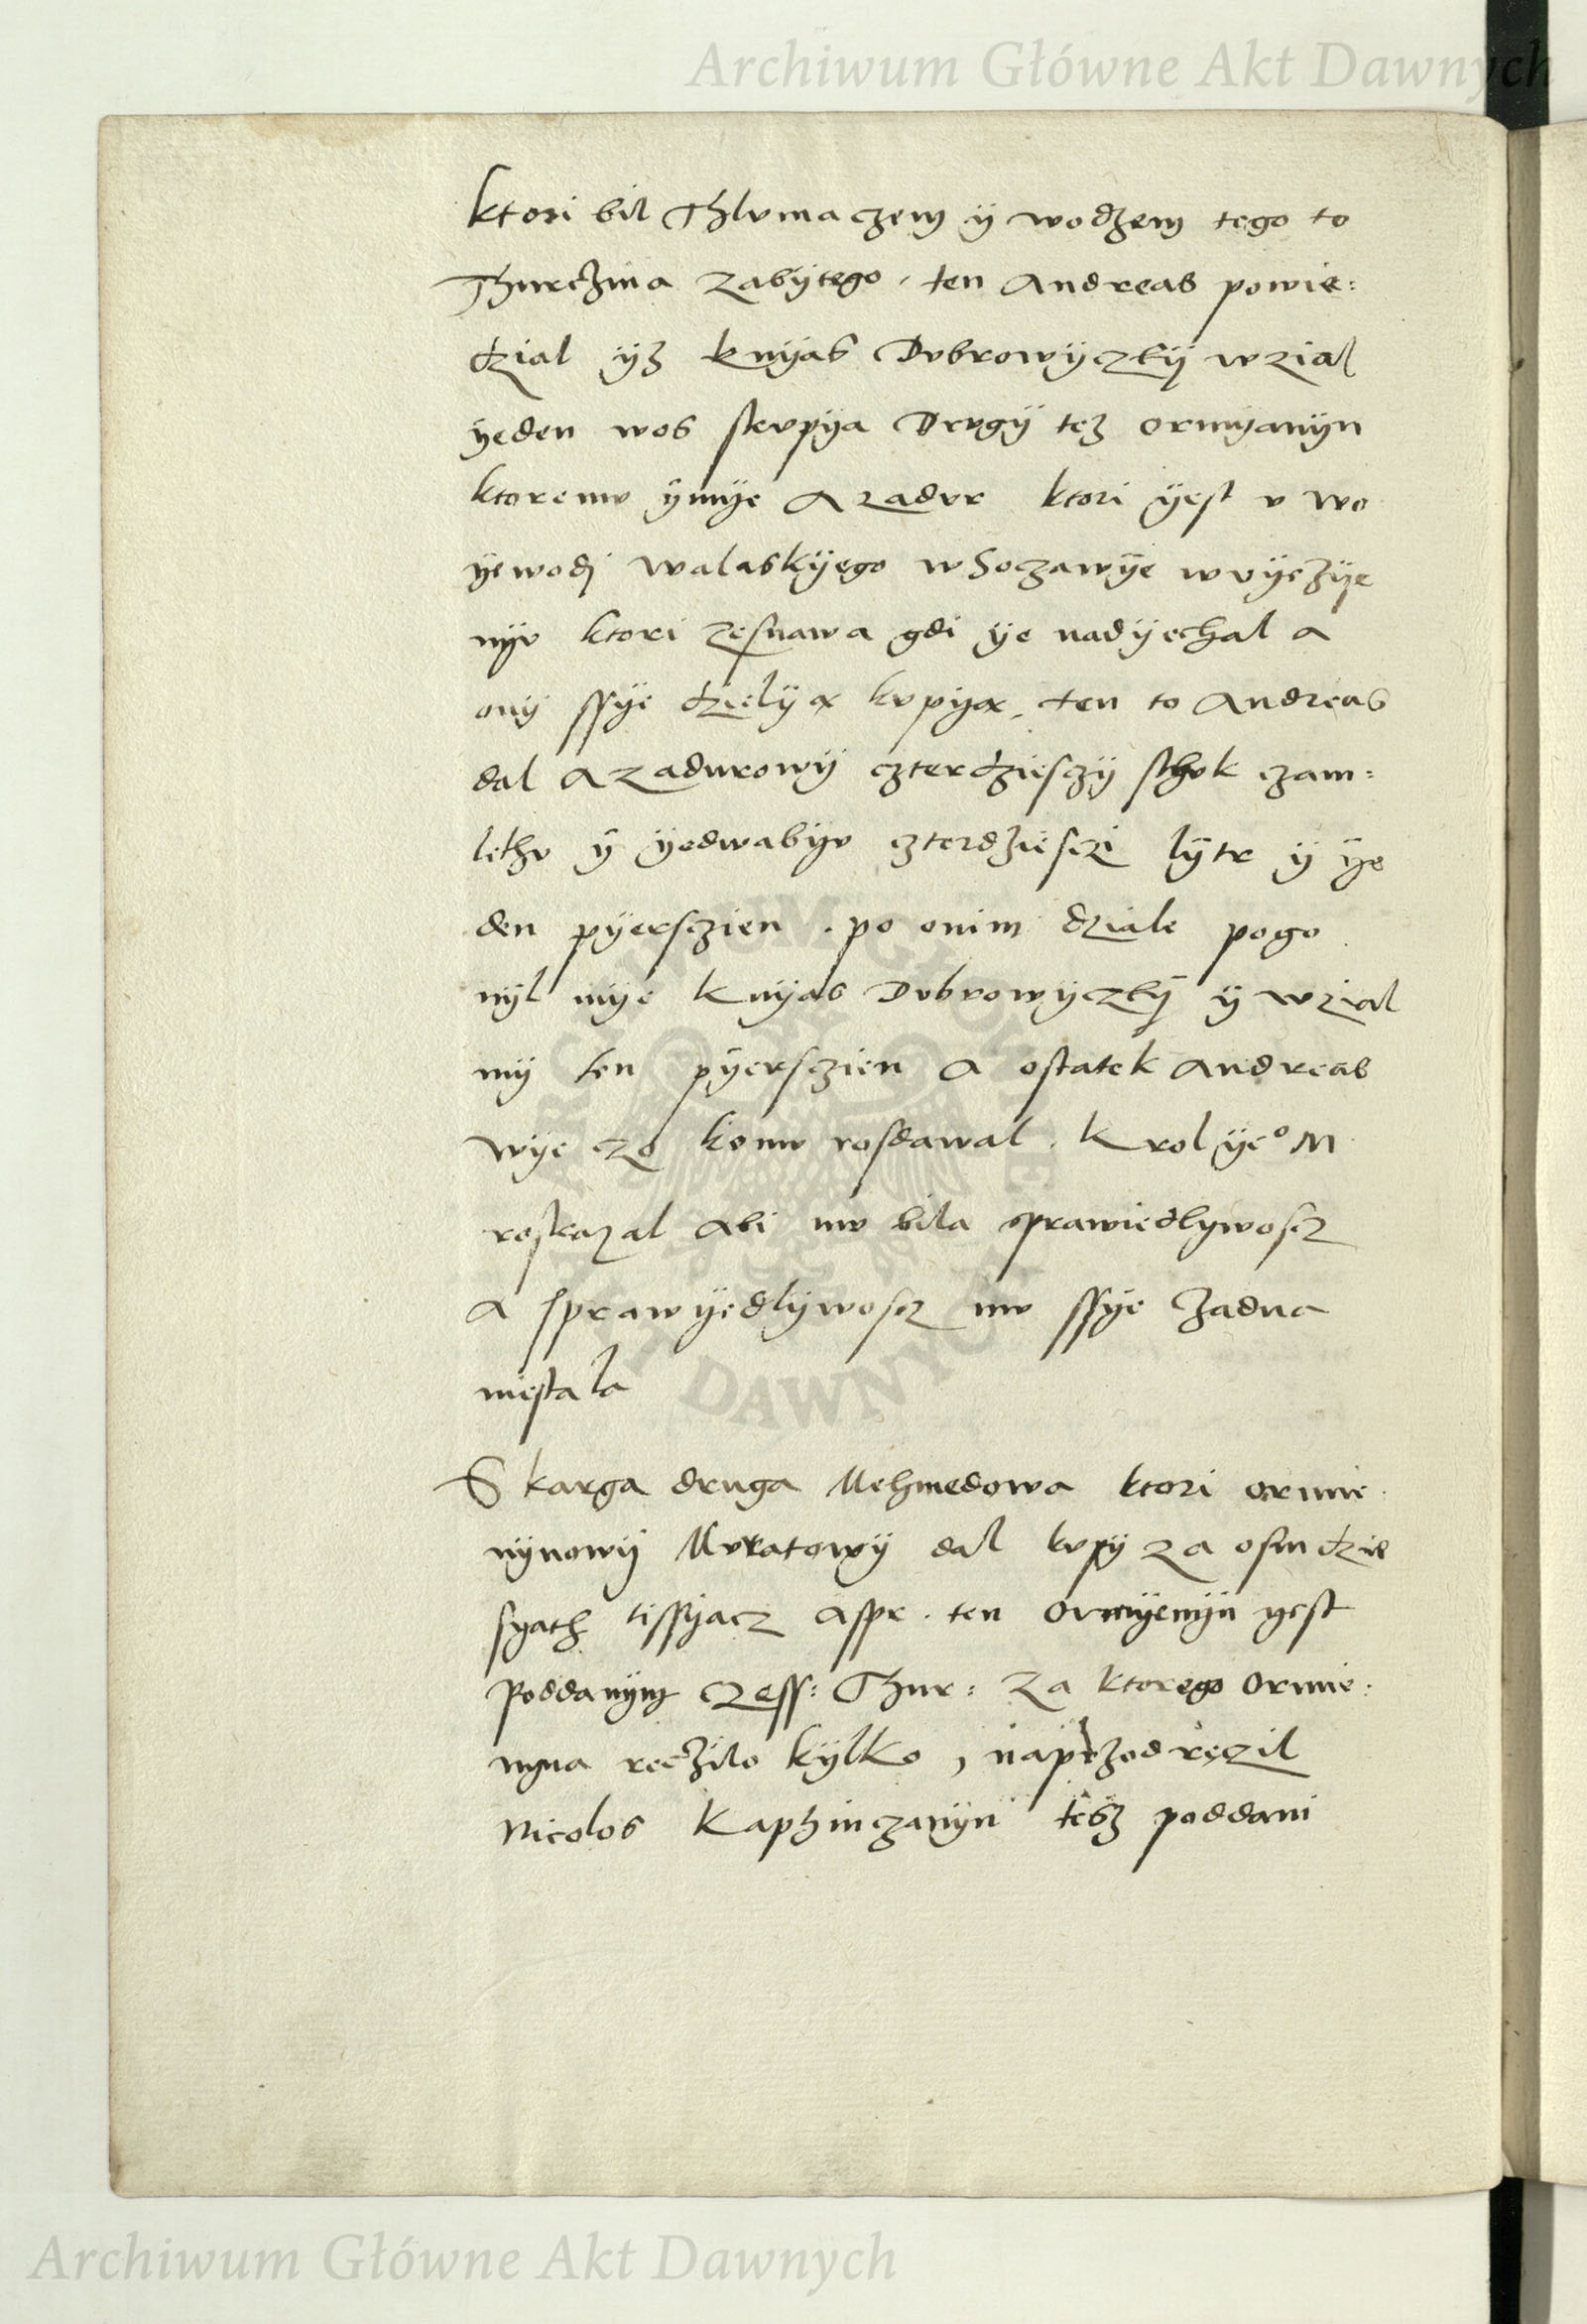 Archiwum Główne Akt Dawnych
ktori bil Thlvmaczem ÿ wodzem tego to
Thurczina zabÿtego, ten Andreas powie:
dzial ÿz knÿas Dvbrowÿczkÿ wzial
ÿeden wos skvpÿa Drvgÿ tez ormÿanÿn
ktoremv ÿmÿe Azadvr ktori ÿest v wo
ÿewodj walaskÿego w Soczawÿe w vÿezÿe
nÿv ktori zesnawa gdi ÿe nadÿechal a
onÿ ssÿe dzielÿą kvpÿą, ten to Andreas
dal Azadurowÿ czterdziesczÿ schok czam:
lethv ÿ ÿedwabÿv czterdziesczi lÿtr ÿ ÿe
den pÿersczien. po onim dziale pogo
nÿl mÿe Knÿas Dvbrowÿczkÿ ÿ wzial
mÿ ten pÿersczien a ostatek Andreas
wÿe czo komv rosdawal. Krol ÿeº M
roskazal abi mv bila sprawiedlywoscz
a sprawÿedlÿwoscz mv ssÿe zadna
niestala
Skarga druga Mehmedowa ktori ormie
nÿnowÿ Mvratowÿ dal kvpÿ za osmdzie
syath tissÿacz aspr. ten Ormÿenÿn ÿest
Poddanÿm czess: Thur: za ktorego Ormie:
nyna reczilo kÿlko, naprzod ręczil
Nicolos Kaphinczanÿn tesz poddani
Archiwum Główne Akt Dawnych